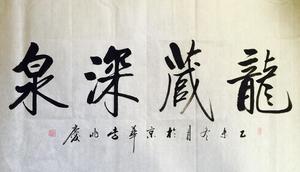 龍藏深泉
乙未冬月於京華